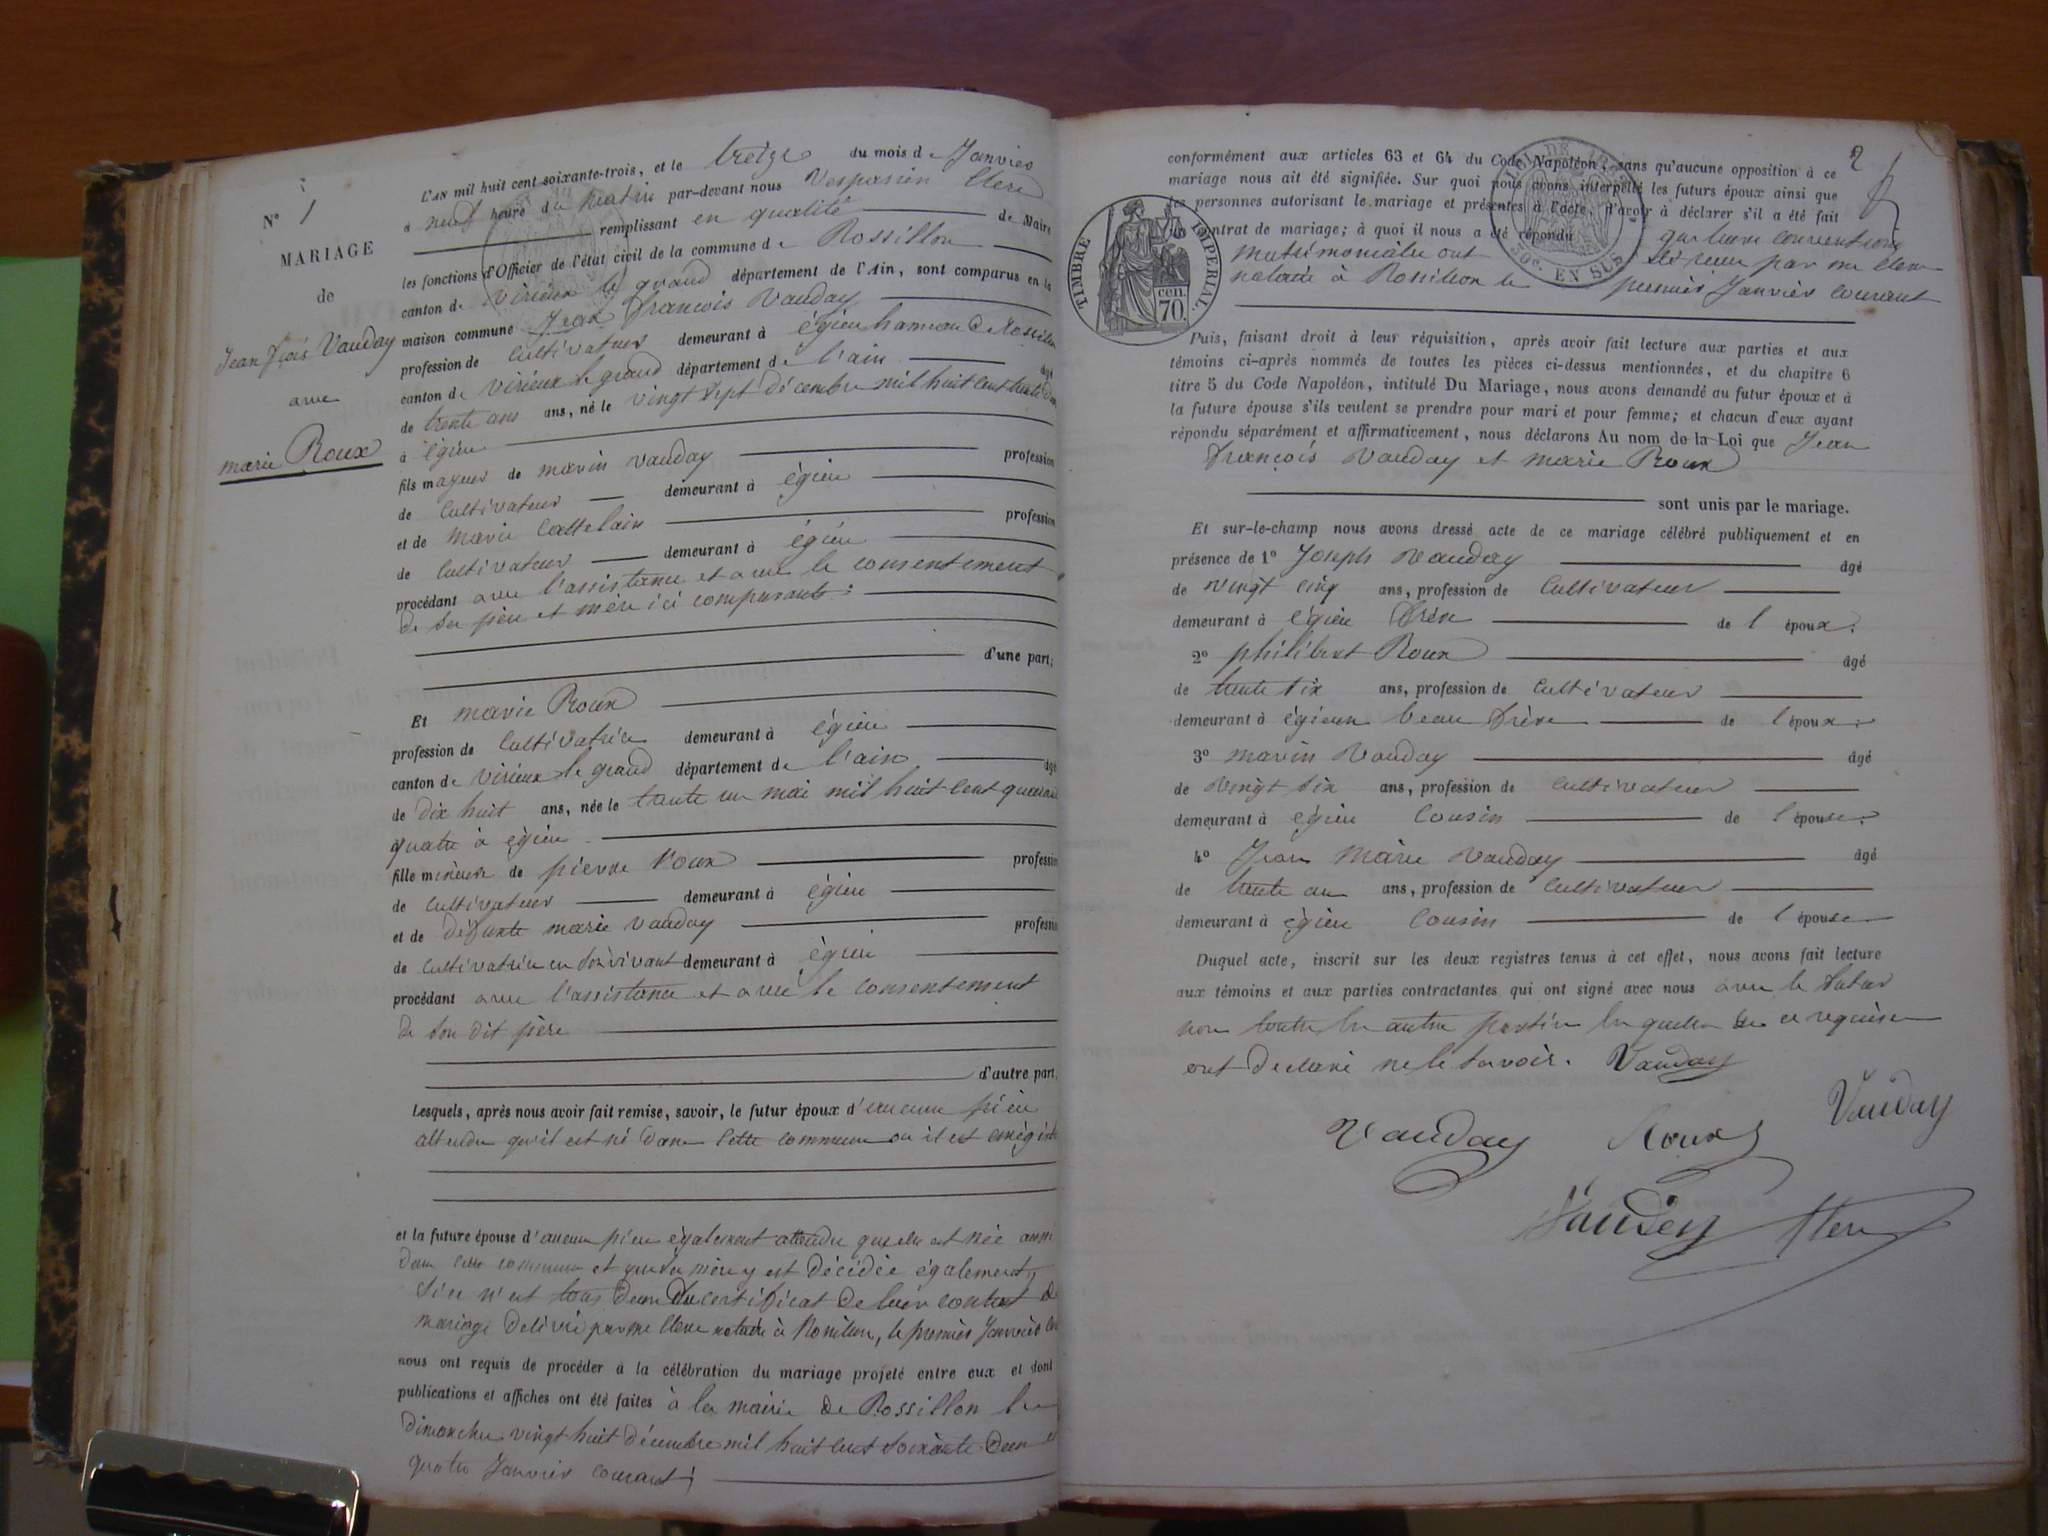 N° 1
MARIAGE
de
Jean Fçois Vauday
avec
marie Roux
L'AN mil huit cent soixante-trois, et le treize du mois de Janvier
à neuf heure du matin par-devant nous Vespasien Clerc
remplissant en qualité de Maire
les fonctions d'Officier de l'état civil de la commune de Rossillon
canton de virieux le grand département de l'Ain, sont comparus en la
maison commune Jean François Vauday
profession de cultivateur demeurant à égieu hameau de Rossillon
canton de virieux le grand département de l'ain âgé
de trente ans ans, né le vingt sept décembre mil huit cent trente deux
à égieu
fils majeur de marin vauday profession
de cultivateur demeurant à égieu
et de marie Cattelain profession
de cultivateur demeurant à égieu
procédant avec l'assistance et avec le consentement
de ses père et mère ici comparants :
d'une part;
Et marie Roux
profession de cultivatrice demeurant à égieu
canton de virieux le grand département de l'ain âgé
de dix huit ans, née le trente un mai mil huit cent quarante
quatre à égieu
fille mineure de pierre Roux profession
de cultivateur demeurant à égieu
et de défunte marie vauday profession
de cultivatrice en son vivant demeurant à égieu
procédant avec l'assistance et avec le consentement
de son dit père
d'autre part,
Lesquels, après nous avoir fait remise, savoir, le futur époux d'aucune pièce
attendu qu'il est né dans cette commune ou il est enregistré
et la future épouse d'aucune pièce également attendu quelle est née aussi
dans cette commune et que sa mère y est décédée également,
si ce n'est tous deux du certificat de leur contrat de
mariage délivré par me Clerc notaire à Rossillon, le premier Janvier
nous ont requis de procéder à la célébration du mariage projeté entre eux et dont
publications et affiches ont été faites à la mairie de Rossillon les
dimanches vingt huit décembre mil huit cent soixante deux et
quatre Janvier courant;
2
conformément aux articles 63 et 64 du Code Napoléon, sans qu'aucune opposition à ce
mariage nous ait été signifiée. Sur quoi nous avons interpellé les futurs époux ainsi que
les personnes autorisant le mariage et présentes à l'acte, d'avoir à déclarer s'il a été fait
contrat de mariage; à quoi il nous a été répondu que leurs conventions
matrimoniales ont été reçues par me Clerc
notaire à Rossillon le premier Janvier courant
TIMBRE IMPÉRIAL
70 cen.
50c. EN SUS
Puis, faisant droit à leur réquisition, après avoir fait lecture aux parties et aux
témoins ci-après nommés de toutes les pièces ci-dessus mentionnées, et du chapitre 6
titre 5 du Code Napoléon, intitulé Du Mariage, nous avons demandé au futur époux et à
la future épouse s'ils veulent se prendre pour mari et pour femme; et chacun d'eux ayant
répondu séparément et affirmativement, nous déclarons Au nom de la Loi que Jean
François Vauday et marie Roux
sont unis par le mariage.
Et sur-le-champ nous avons dressé acte de ce mariage célébré publiquement et en
présence de 1° Joseph Vauday âgé
de vingt cinq ans, profession de cultivateur
demeurant à égieu frère de l époux.
2° philibert Roux âgé
de trente six ans, profession de cultivateur
demeurant à égieu beau frère de l époux.
3° marin Vauday âgé
de vingt six ans, profession de cultivateur
demeurant à égieu Cousin de l épouse.
4° Jean Marie Vauday âgé
de trente un ans, profession de cultivateur
demeurant à égieu Cousin de l épouse
Duquel acte, inscrit sur les deux registres tenus à cet effet, nous avons fait lecture
aux témoins et aux parties contractantes qui ont signé avec nous avec le futur
non toutes les autres parties lesquelles de ce requises
ont déclaré ne le savoir. Vauday
Vauday Roux Vauday
Vauday Clerc